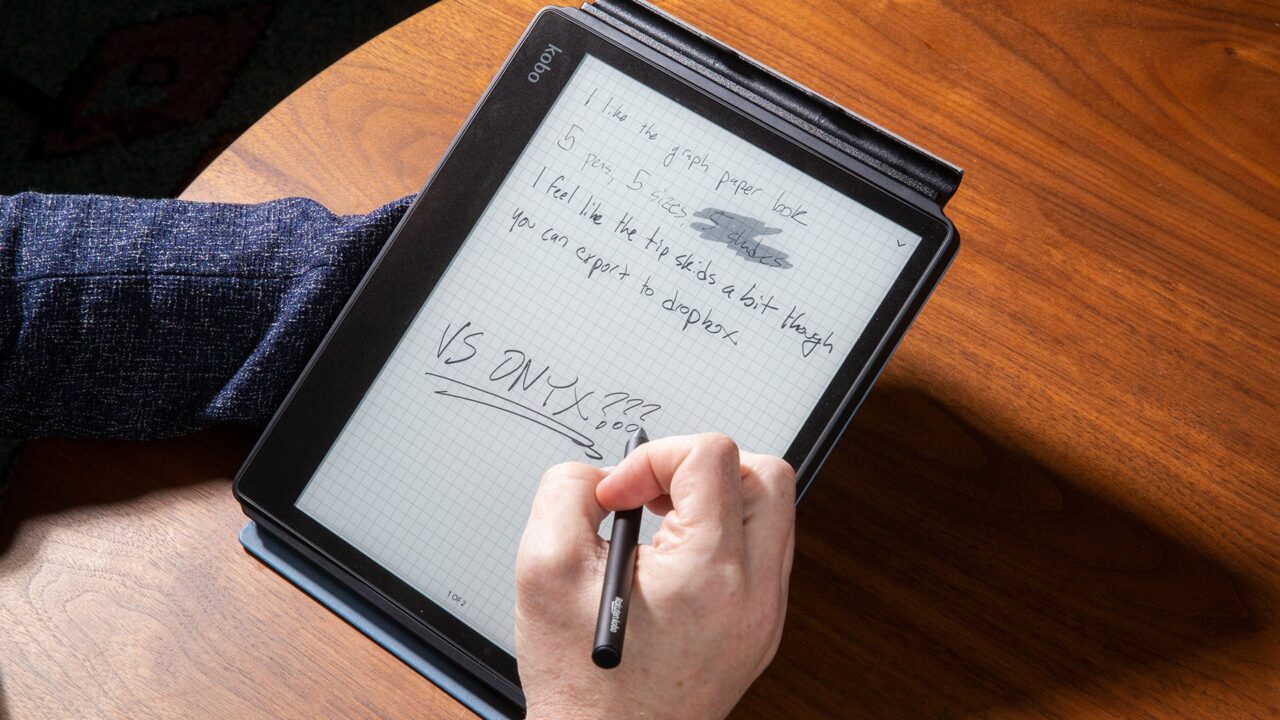 kobo
I like the graph paper look
5 pens, 5 sizes, 5 shades
I feel like the tip skids a bit though
you can export to dropbox
VS ONYX???
1 OF 2
Rakuten kobo